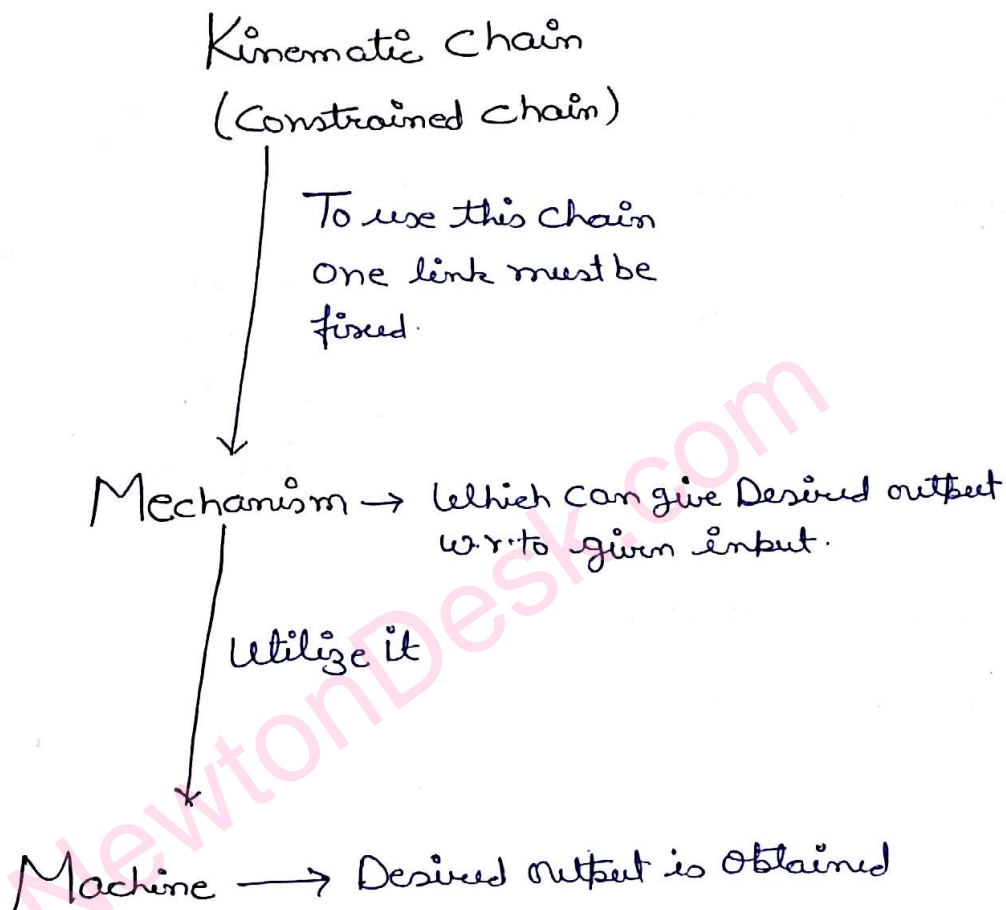 Kinematic Chain
(Constrained Chain)
To use this chain
one link must be
fixed.
Mechanism → Which can give Desired output
w.r.to given input.
Utilize it
Machine → Desired output is Obtained
NewtonDesk.com